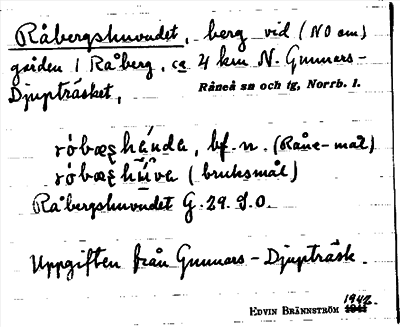 Råbergshuvudet, berg vid (NO om)
gården 1 Råberg, ca 4 km N. Gunnars-
Djupträsket,
Råneå sn och tg, Norrb. l.
bf. n. (Råne-mål)
(bruksmål)
Råbergshuvudet G. 29. S.O.
Uppgiften från Gunnars-Djupträsk.
1942.
EDVIN BRÄNNSTRÖM 1941